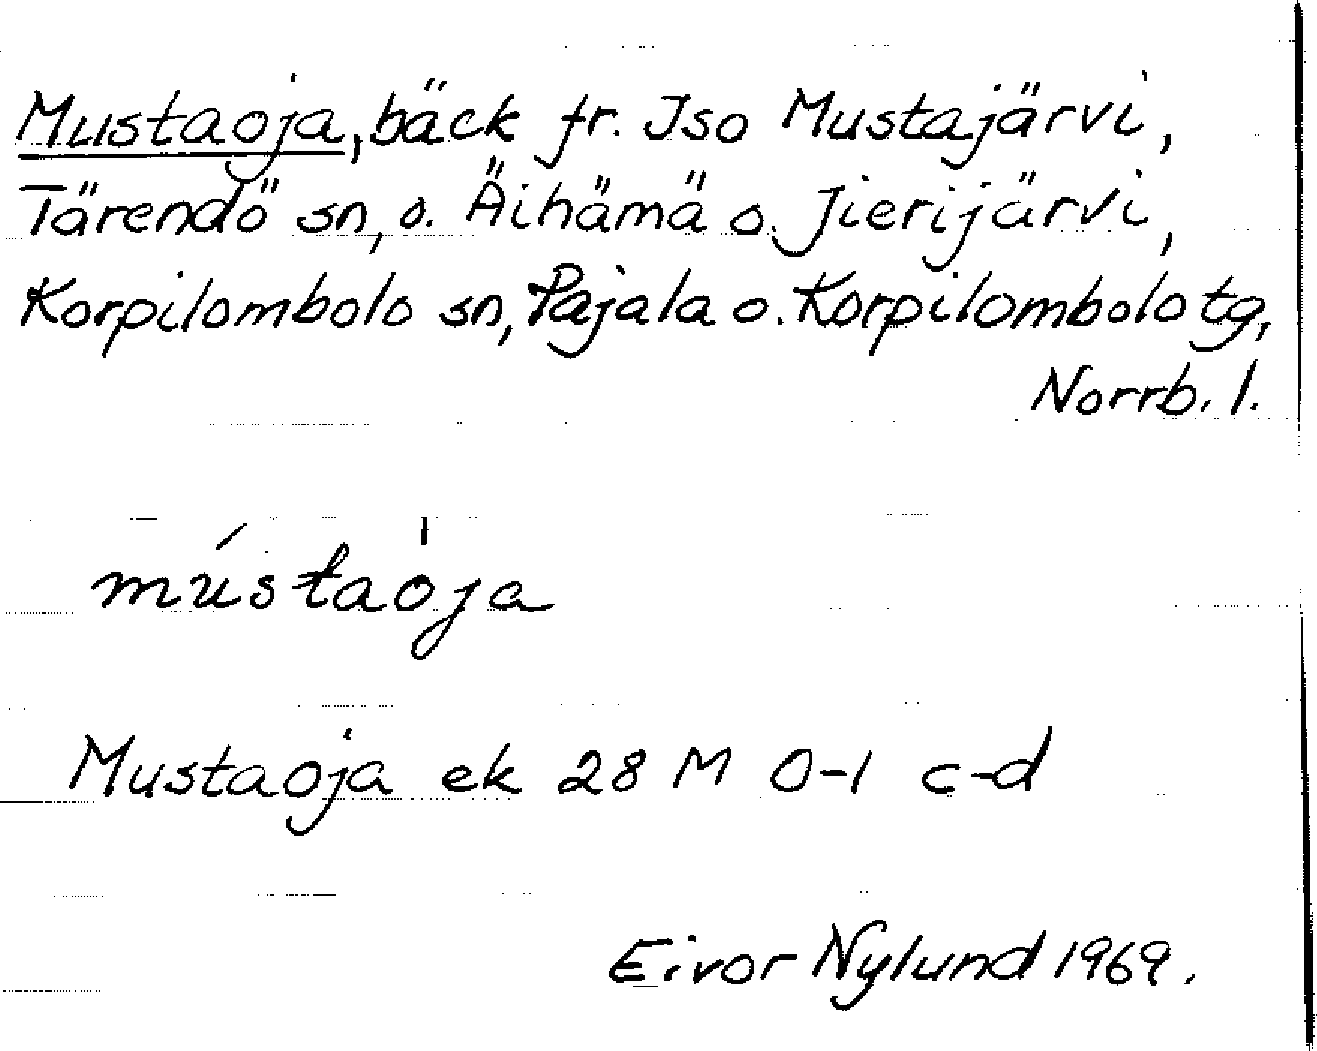 Mustaoja, bäck fr. Iso Mustajärvi,
Tärendö sn, o. Äihämä o. Jierijärvi,
Korpilombolo sn, Pajala o. Korpilombolo tg,
Norrb. l.
mústaòja
Mustaoja ek 28 M 0-1 c-d
Eivor Nylund 1969.